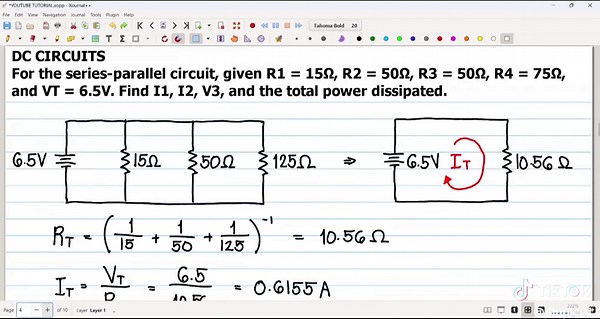 *YOUTUBE TUTORIAL.xopp - Xournal++
File Edit View Navigation Journal Tools Plugin Help
Tahoma Bold 20
DC CIRCUITS
For the series-parallel circuit, given R1 = 15Ω, R2 = 50Ω, R3 = 50Ω, R4 = 75Ω,
and VT = 6.5V. Find I1, I2, V3, and the total power dissipated.
6.5V 15Ω 50Ω 125Ω ⇒ 6.5V IT 10.56Ω
RT = (1/15 + 1/50 + 1/125)^-1 = 10.56Ω
IT = VT/R = 6.5/10.56 = 0.6155A
Page 4 of 10 Layer Layer 1
TikTok